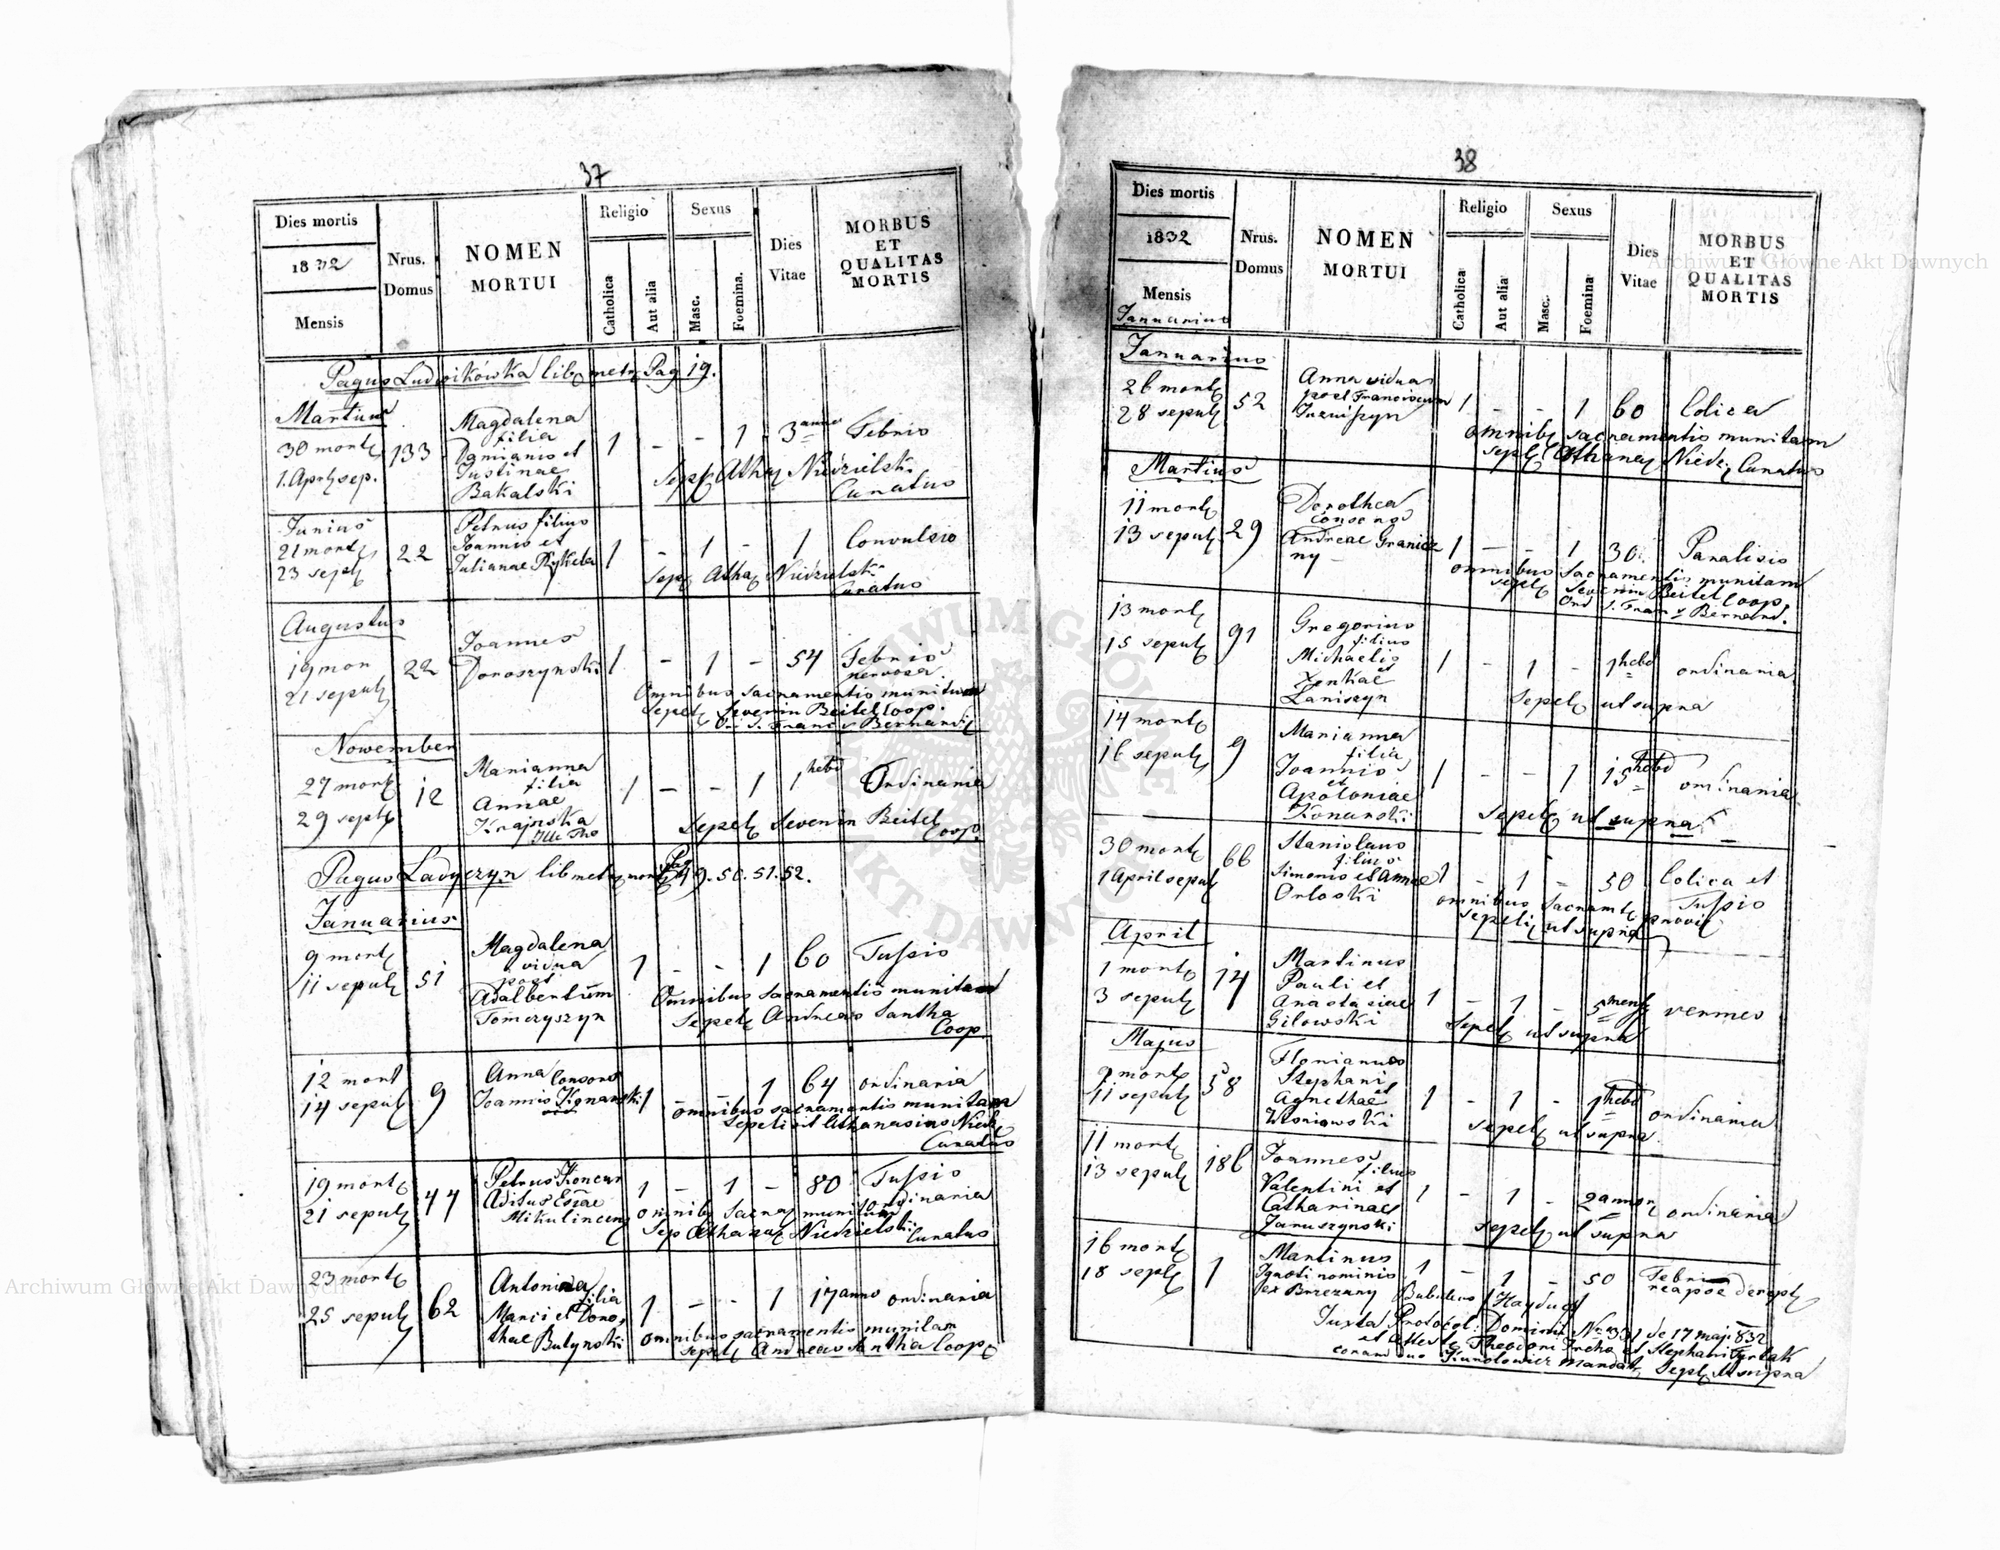 37
Dies mortis
1832
Mensis
Nrus.
Domus
NOMEN
MORTUI
Religio
Catholica
Aut alia
Sexus
Masc.
Foemina.
Dies
Vitae
MORBUS
ET
QUALITAS
MORTIS
Pagus Ludwikówka lib metr Pag 19.
Martius
30 mort
1. Apr sep.
133
Magdalena
filia
Damiani et
Justinae
Bakalski
1 - - 1 3 anno Febris
Sep Atha Niedzielski
Curatus
Junius
21 mort
23 sept
22
Petrus filius
Joannis et
Julianae Rykeba
1 - 1 - 1 Convulsio
Sep Atha Niedzielski
Curatus
Augustus
19 mon
21 sepult
22
Joannes
Doroszynski
1 - 1 - 54 Febris
nervosa.
Omnibus sacramentis munitum
Sepel Severin Beitel Coop.
Or. S. Franc s Bernardi
Nowember
27 mort
29 sept
12
Marianna
filia
Annae
Krajnska
Ille Tho
1 - - 1 1 hebd Ordinaria
Sepel Severin Beitel
Coop.
Pagus Ladyczyn lib metr mort Pag 49. 50. 51. 52.
Januarius
9 mort
11 sepult
51
Magdalena
vidua
post
Adalbertum
Tomczyszyn
1 - - 1 60 Tussis
Omnibus sacramentis munitam
Sepel Andreas Santha
Coop
12 mort
14 sepul
9
Anna Consors
Joannis Konarski
1 - - 1 64 ordinaria
omnibus sacramentis munitam
Sepelivit Athanasius Niedz
Curatus
19 mort
21 sepult
44
Petrus Koncur
Aditus
Mikulincen
1 - 1 - 80 Tussis
ordinaria
omnib Sacra munitum
Sep Athana Niedzielski Curatus
23 mort
25 sepult
62
Antonina
filia
Marci et Doro
thae Bulynski
1 - - 1 17 anno ordinaria
omnibus sacramentis munitam
sepel Andreas Santha Coop
38
Dies mortis
1832
Mensis
Januarius
Nrus.
Domus
NOMEN
MORTUI
Religio
Catholica
Aut alia
Sexus
Masc.
Foemina
Dies
Vitae
MORBUS
ET
QUALITAS
MORTIS
Januarius
26 mort
28 sepult
52
Anna vidua
post Franciscum
1 - - 1 60 Colica
omnib sacramentis munitam
sepel Athana Niedz Curatus
Martius
11 mort
13 sepult
29
Dorothea
Consors
Andreae Granicz
ny
1 - - 1 30. Paralisis
omnibus Sacramentis munitam
sepel Severin Beitel Coop.
Ord S. Fran s Bernard.
13 mort
15 sepult
91
Gregorius
filius
Michaelis
et
Xenkae
Laniszyn
1 - 1 - 1 hebd ordinaria
Sepel ut supra
14 mort
16 sepult
9
Marianna
filia
Joannis
et
Apoloniae
Konarski
1 - - 1 15 hebd ordinaria
Sepel ut supra
30 mort
1 April sepul
66
Stanislaus
filius
Simonis et Annae
Orloski
1 - 1 - 50 Colica et
Tussis
omnibus Sacramt provis
Sepeli ut supra
April
1 mort
3 sepult
14
Martinus
Pauli et
Anastasiae
Gilowski
1 - 1 - 5 mens vermes
Sepel ut supra
Majus
9 mort
11 sepult
58
Florianus
Stephani
et
Agnethae
Woniowski
1 - 1 - 1 hebd ordinaria
Sepel ut supra
11 mort
13 sepult
186
Joannes
filius
Valentini et
Catharinae
Januszynski
1 - 1 - 2 annor ordinaria
Sepel ut supra
16 mort
18 sept
1
Martinus
Ignoti nominis
ex Brzezany
1 - 1 - 50 Febri
Bubulcus (Hayduq)
Juxta Protocol: Dominii Nro 331 de 17 maji 832
et Attest Theodori Frcho et Stephani Tyrlak
coram duo Kunolowicz mandat Sepel ut supra
Archiwum Główne Akt Dawnych
Archiwum Główne Akt Dawnych
ARCHIWUM GŁÓWNE AKT DAWNYCH